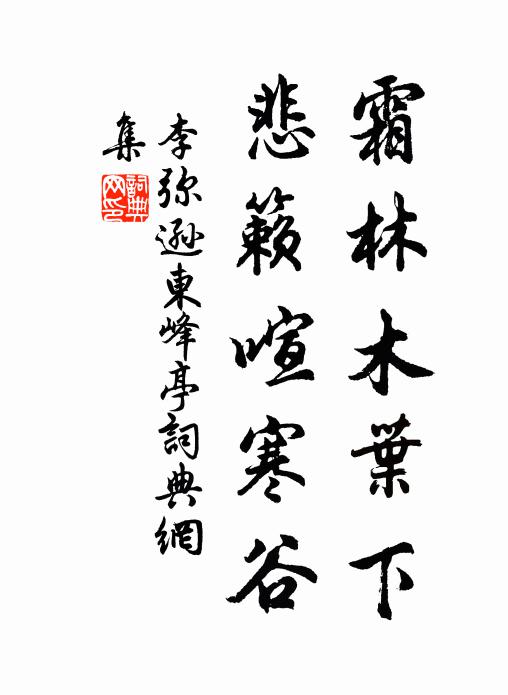 霜林木葉下
悲籟喧寒谷
李弥遜東峰亭詞典網
集
詞典网印